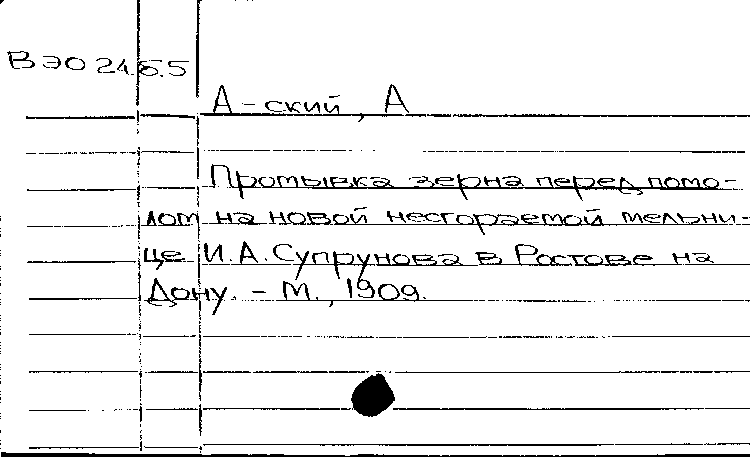 В ЭО 24.б.5
А-ский, А
Промывка зерна перед помо-
лом на новой несгораемой мельни-
це И.А. Супрунова в Ростове на
Дону. - М., 1909.